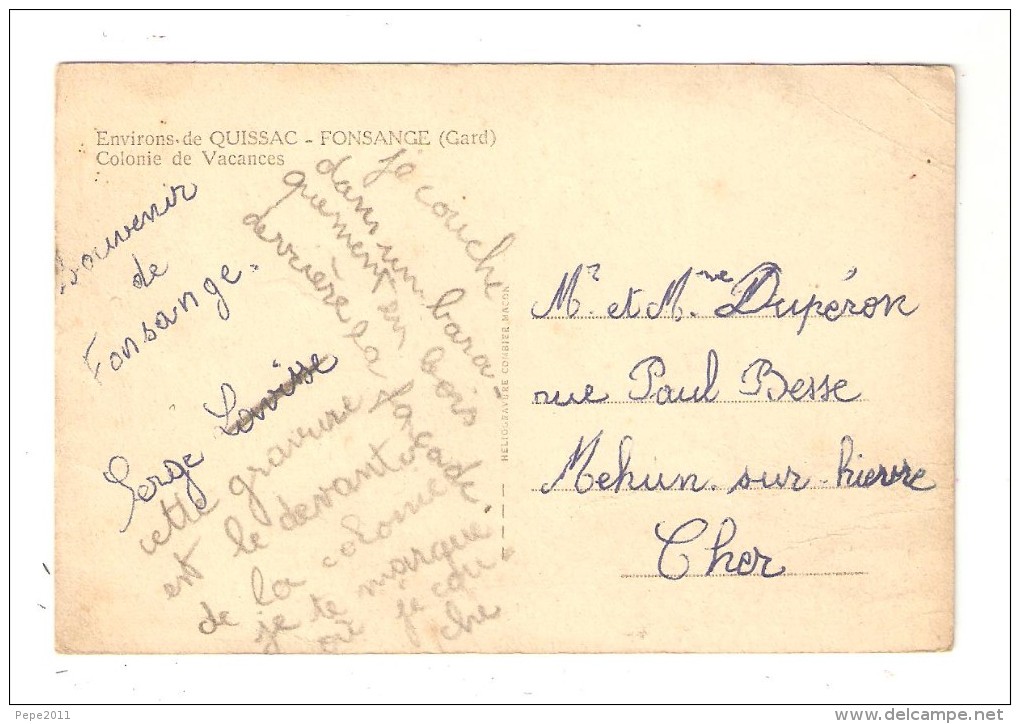 Environs de QUISSAC - FONSANGE (Gard)
Colonie de Vacances
Souvenir
de
Fonsange.
Serge
Je couche
dans un bara-
quement en bois
derrière la façade
cette gravure
est le devant
de la colonie
je te marque
où je cou-
che
HELIOGRAVURE COMBIER MACON
Mr et Mme Dupéron
rue Paul Besse
Mehun-sur-hievre
Cher
Pepe2011
www.delcampe.net